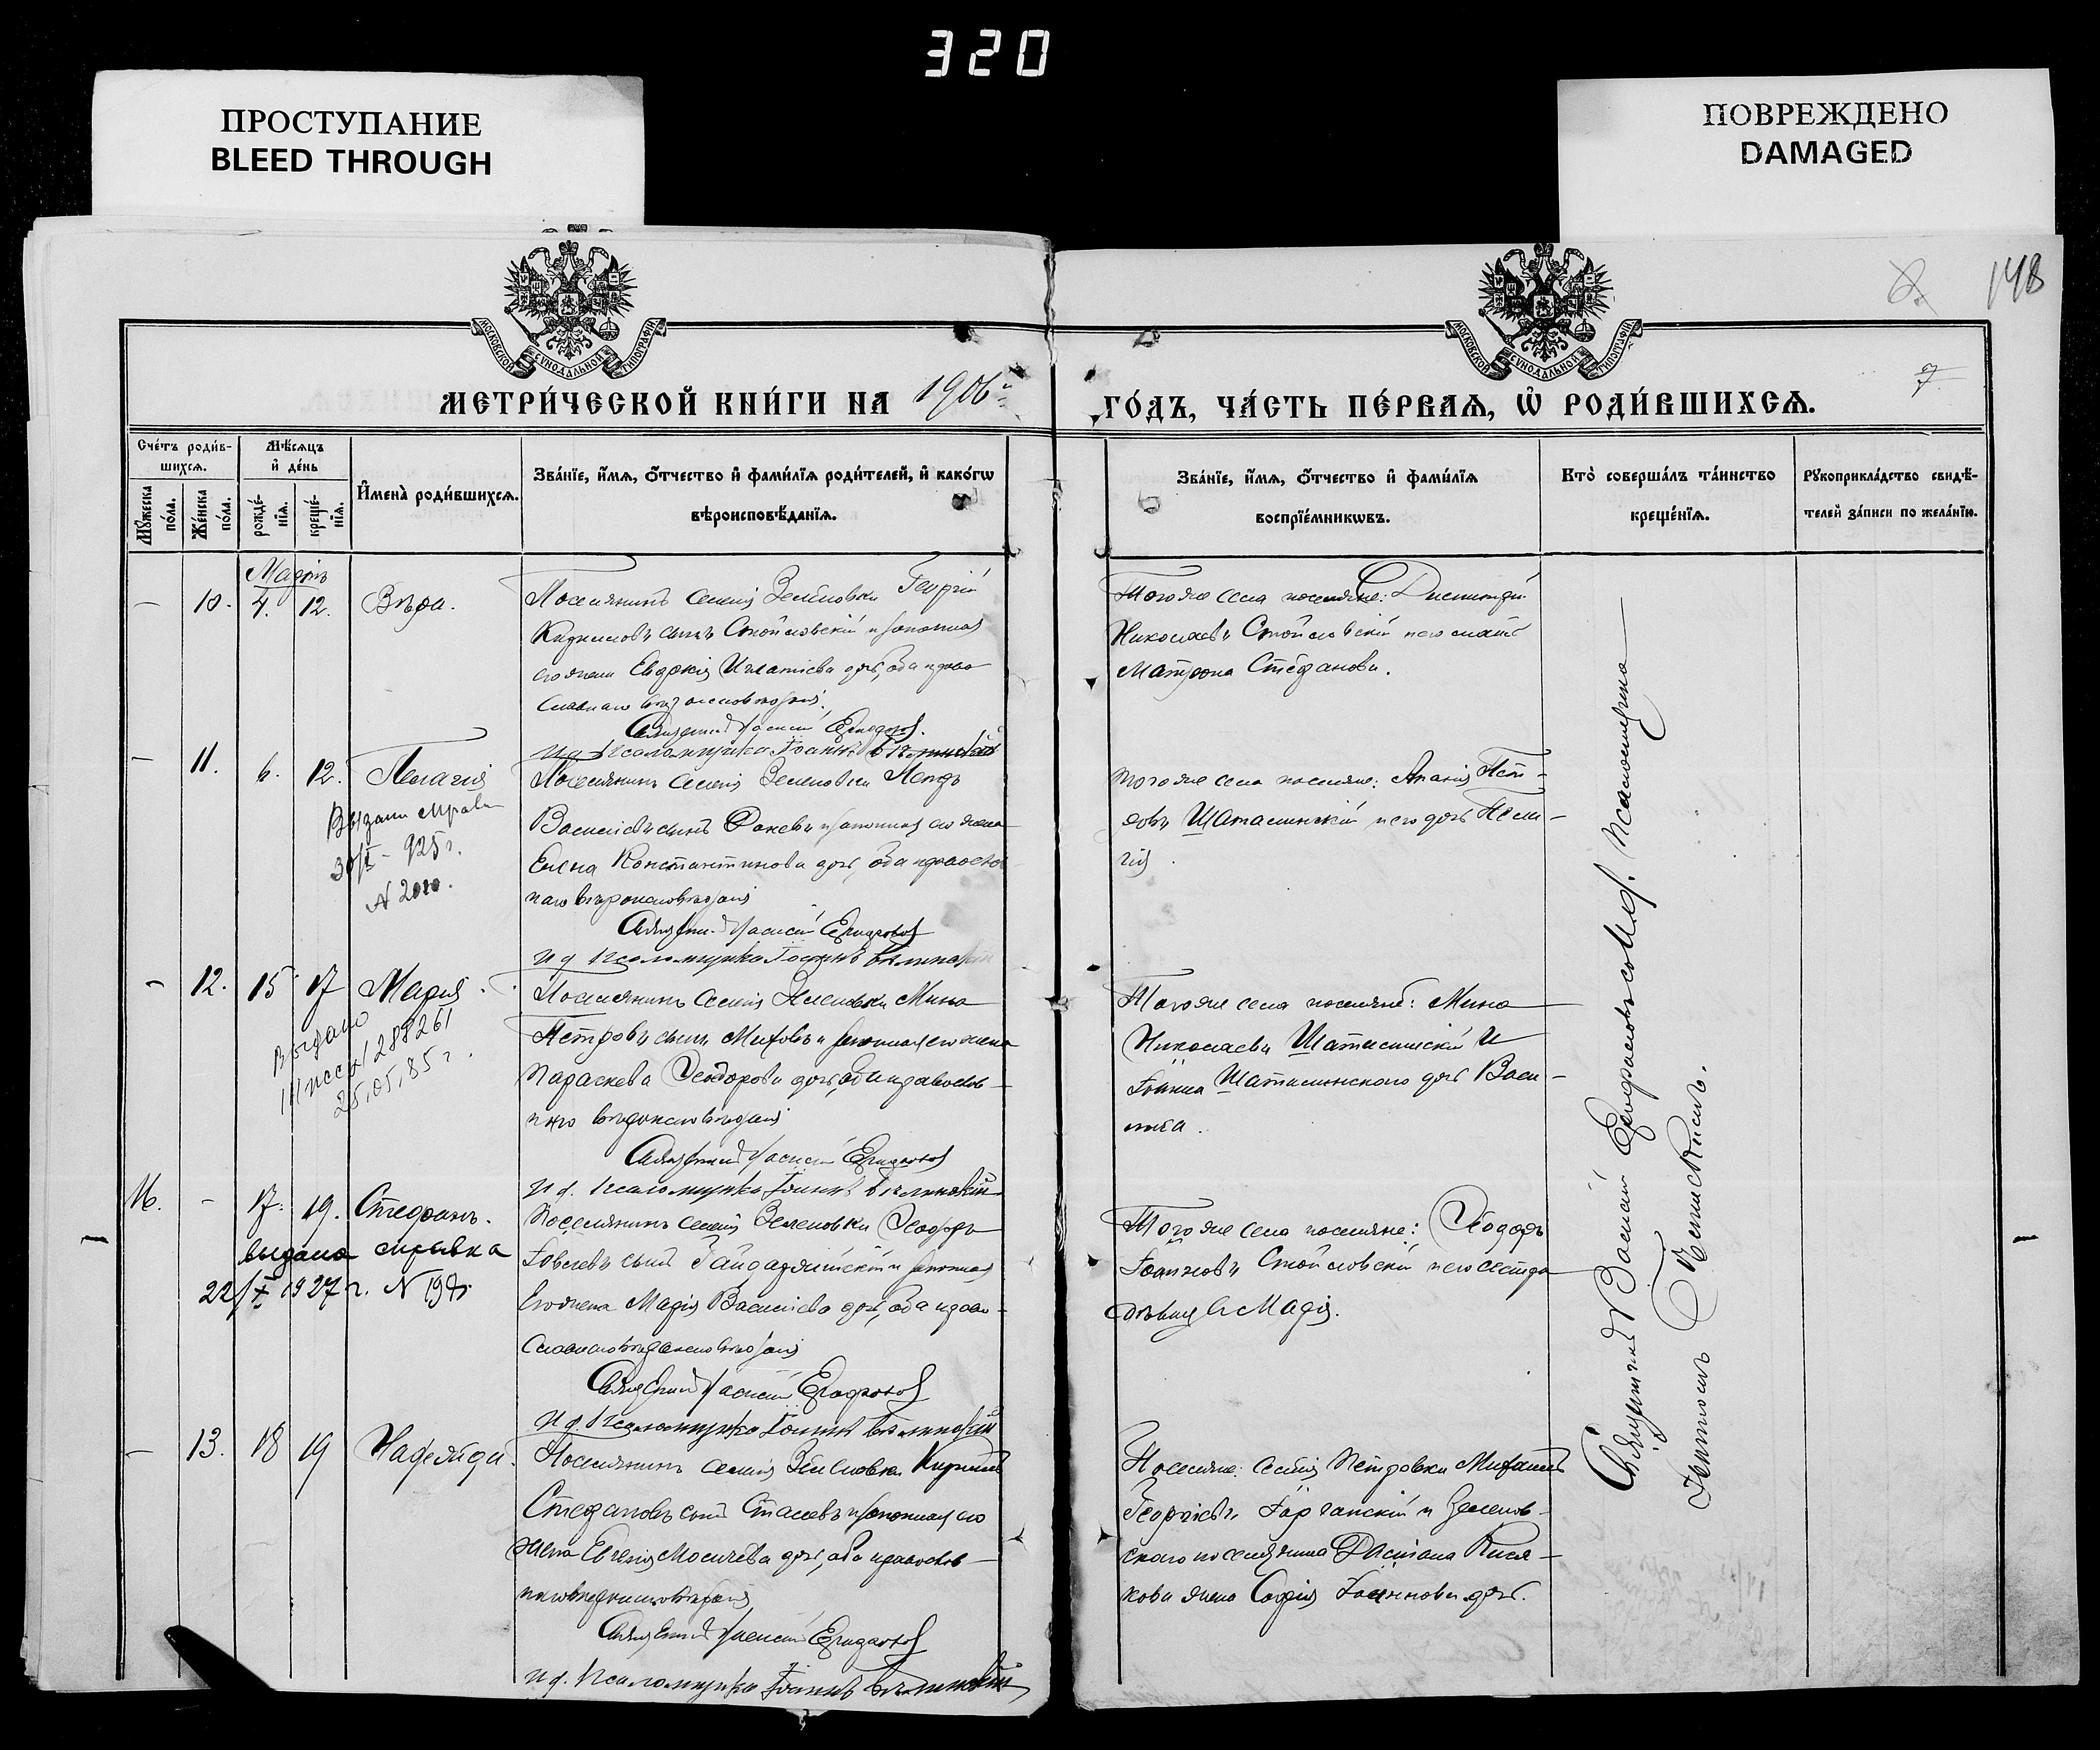 320
ПРОСТУПАНИЕ
BLEED THROUGH
ПОВРЕЖДЕНО
DAMAGED
148
МОСКОВСКОЙ СУНОДАЛЬНОЙ ТИПОГРАФІИ
МОСКОВСКОЙ СУНОДАЛЬНОЙ ТИПОГРАФІИ
7
МЕТРИ́ЧЕСКОЙ КНИ́ГИ НА 1906 й
ГО́ДЪ, ЧА́СТЬ ПЕ́РВАѦ, Ѡ҆ РОДИ́ВШИХСѦ.
Сче́тъ роди́в-
шихсѧ.
Мѣ́сѧцъ
и҆ де́нь
Мꙋ́жеска по́ла.
Же́нска по́ла.
рожде́-нїѧ.
креще́-нїѧ.
И҆мена̀ роди́вшихсѧ.
Зва́нїе, и҆́мѧ, ѻ҆́тчество и҆ фами́лїѧ роди́телей, и҆ како́гѡ
вѣроисповѣ́данїѧ.
Зва́нїе, и҆́мѧ, ѻ҆́тчество и҆ фами́лїѧ
воспрїе́мникѡвъ.
Кто̀ соверша́лъ та́инство
креще́нїѧ.
Рꙋкоприкла́дство свидѣ́-
телей за́писи по жела́нїю.
Мартъ
- 10. 4. 12. Вѣра.
Поселянинъ селенія Зеленовки Георгій
Кирилловъ сынъ Стойловскій и законная
его жена Евдокія Игнатіева дочь, оба право
славнаго вѣроисповѣданія.
Священникъ Василій
И д Псаломщика Іоаннъ
Тогоже села поселяне: Димитрій
Николаевъ Стойловскій и его мать
Матрона Стефанова.
- 11. 6. 12. Пелагія
Выдана справка
925 г.
N 2010.
Поселянинъ селенія Зеленовки Петръ
Василіевъ сынъ Ракевъ и законная его жена
Елена Константинова дочь, оба православ
наго вѣроисповѣданія
Священникъ Василій
И д Псаломщика Іоаннъ
того же села поселяне: Ананія Пет-
ровъ Шаталинскій и его дочь Пела-
гія
- 12. 15 17 Марія
Выдано
288261
25,05,85 г.
Поселянинъ селенія Зеленовки Мина
Петровъ сынъ Миховъ и законная его жена
Параскева Ѳеодорова дочь, оба православ-
наго вѣроисповѣданія
Священникъ Василій
И д. Псаломщика Іоаннъ
Того же села поселяне: Мина
Николаевъ Шаталинскій и
Іоанна Шаталинскаго дочь Васи-
лиса.
16. - 17. 19. Стефанъ.
выдана справка
22/X 1927 г. N
Поселянинъ селенія Зеленовки Ѳеодоръ
сынъ Гайдаржійскій и законная
Его жена Марія Василіева дочь, оба право-
славнаго вѣроисповѣданія
Священникъ Василій
И д. Псаломщика Іоаннъ
Того же села поселяне: Ѳеодоръ
Іоанновъ Стойловскій и его сестра
дѣвица Марія.
- 13. 18 19 Надежда.
Поселянинъ селенія Зеленовки Кириллъ
Стефановъ сынъ Стасевъ и законная его
жена Евгенія Моисеева дочь, оба православ-
наго вѣроисповѣданія
Священникъ Василій
И д. Псаломщика Іоаннъ
Поселяне: селенія Петровки Михаилъ
Георгіевъ и Зеленов-
скаго поселянина Даміана Кися-
кова жена Софія Іоаннова дочь.
Священникъ Василій со И. д. Псаломщика
Іоанномъ